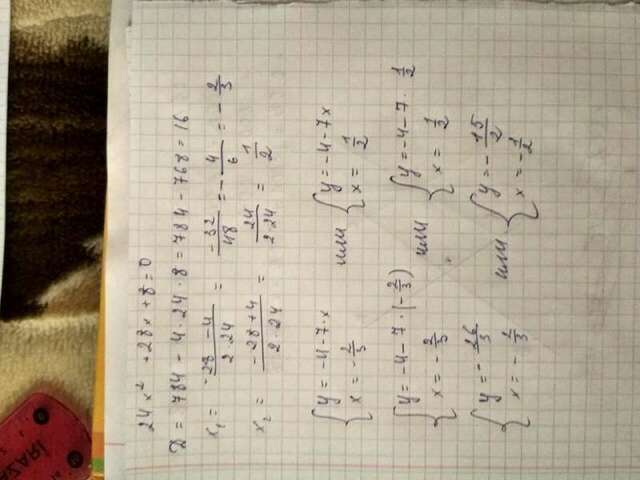 24x² + 28x + 8 = 0
D = 784 - 4·24·8 = 784 - 768 = 16
x₁ = -28-4/2·24 = -32/48 = -4/6 = -2/3
x₂ = -28+4/2·24 = 24/2·24 = 1/2
{ y = -4-7·x или { y = -4-7x
x = -2/3 x = 1/2
{ y = -4-7·(-2/3) или { y = -4-7·1/2
x = -2/3 x = 1/2
{ y = -26/3 или { y = -15/2
x = -2/3 x = -1/2